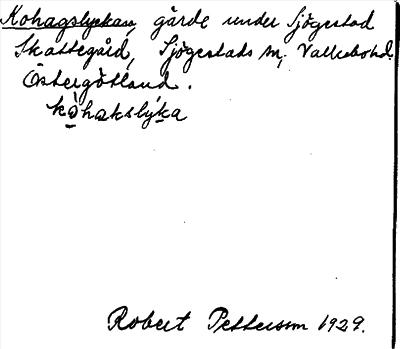 Kohagslyckan, gärde under Sjögestad
Skattegård, Sjögestads sn, Valkebo hd.
Östergötland.
kòhakslýka
Robert Pettersson 1929.